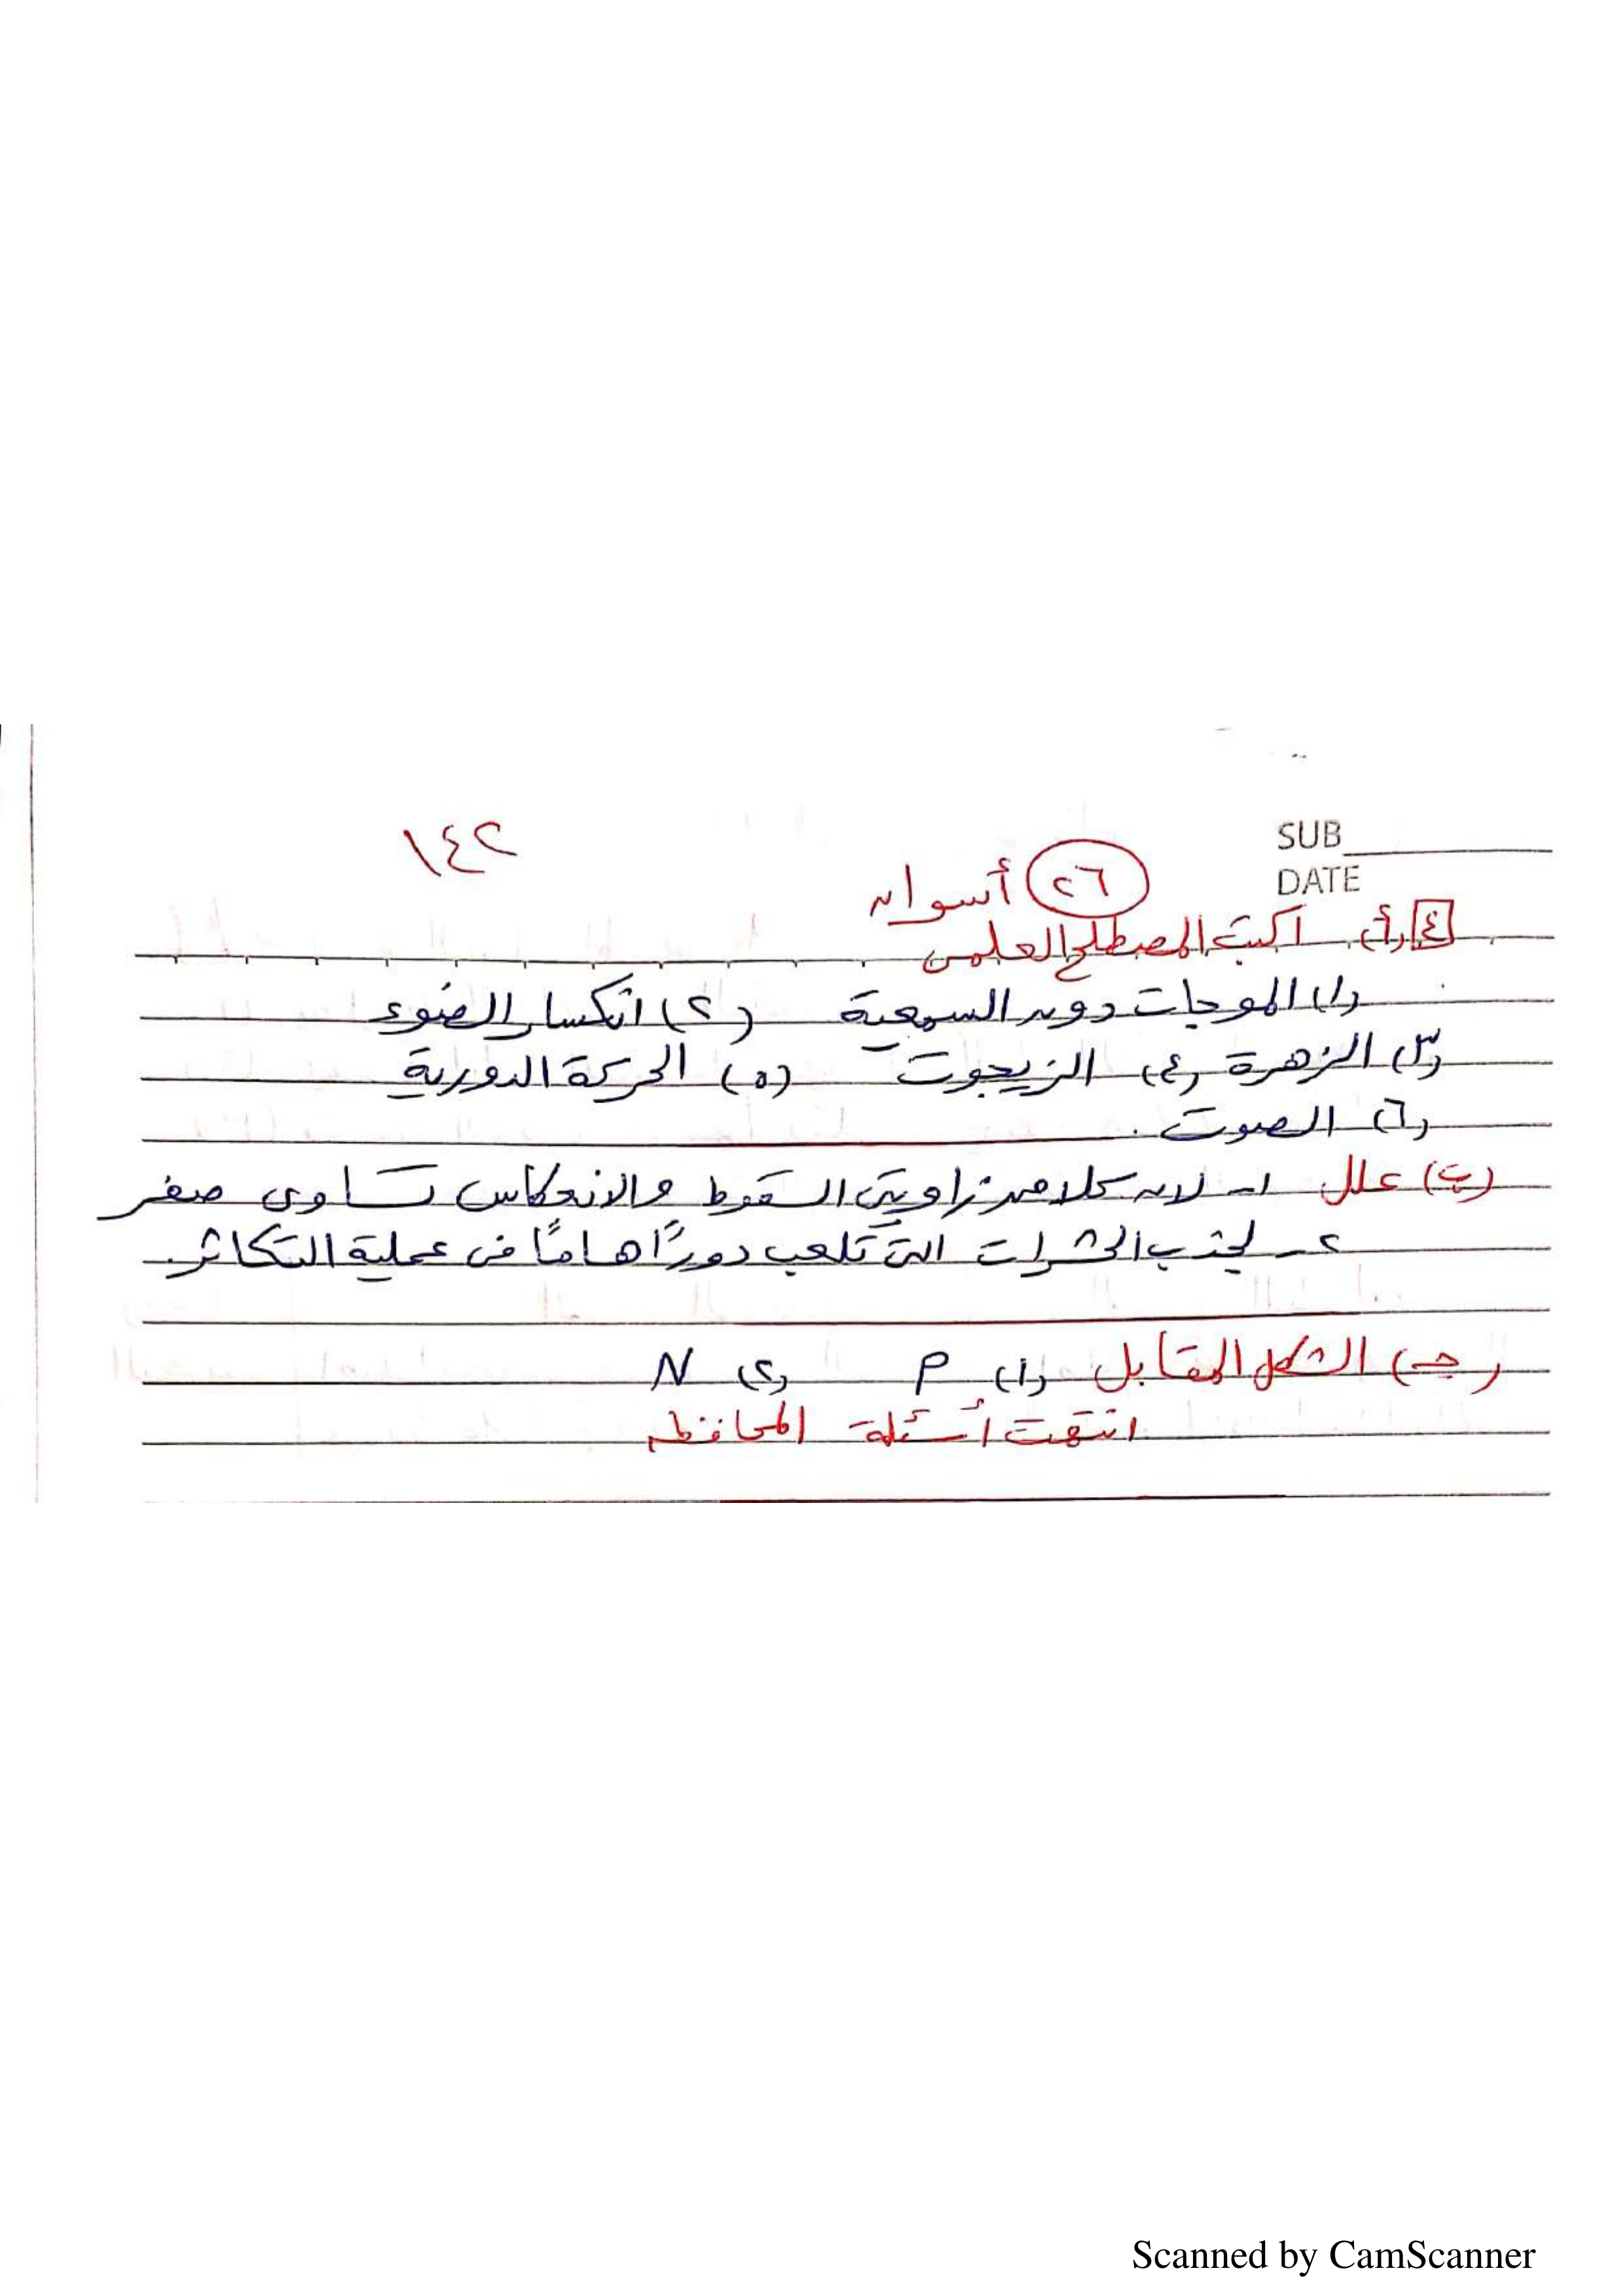 ١٤٢
SUB
٢٦ أسوان
DATE
٤ (أ) اكتب المصطلح العلمى
(١) الموجات دون السمعية (٢) انكسار الضوء
(٣) الزهرة (٤) الزيجوت (٥) الحركة الدورية
(٦) الصوت .
(ب) علل ١- لان كلا من زاويتى السقوط والانعكاس تساوى صفر
٢- لجذب الحشرات التى تلعب دورًا هامًا فى عملية التكاثر.
(جـ) الشكل المقابل (١) P (٢) N
انتهت أسئلة المحافظ
Scanned by CamScanner